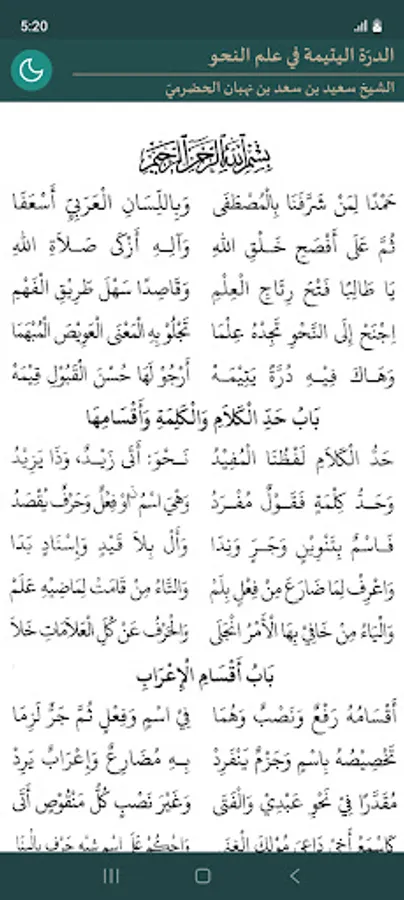 5:20
الدرّة اليتيمة في علم النحو
الشيخ سعيد بن سعد بن نبهان الحضرميّ
بِسْمِ اللَّهِ الرَّحْمَنِ الرَّحِيمِ
حَمْدًا لِمَنْ شَرَّفَنَا بِالْمُصْطَفَى وَبِاللِّسَانِ الْعَرَبِيِّ أَسْعَفَا
ثُمَّ عَلَى أَفْصَحِ خَلْقِ اللهِ وَآلِهِ أَزْكَى صَلَاةِ اللهِ
يَا طَالِبًا فَتْحَ رِتَاجِ الْعِلْمِ وَقَاصِدًا سَهْلَ طَرِيقِ الْفَهْمِ
اِجْنَحْ إِلَى النَّحْوِ تَجِدْهُ عِلْمَا تَجْلُو بِهِ الْمَعْنَى الْعَوِيصَ الْمُبْهَمَا
وَهَاكَ فِيهِ دُرَّةً يَتِيمَهْ أَرْجُو لَهَا حُسْنَ الْقَبُولِ قِيمَهْ
بَابُ حَدِّ الْكَلَامِ وَالْكَلِمَةِ وَأَقْسَامِهَا
حَدُّ الْكَلَامِ لَفْظُنَا الْمُفِيدُ نَحْوُ: أَتَى زَيْدٌ، وَذَا يَزِيدُ
وَحَدُّ كِلْمَةٍ فَقَوْلٌ مُفْرَدُ وَهْيَ اسْمٌ اوْ فِعْلٌ وَحَرْفٌ يُقْصَدُ
فَاسْمٌ بِتَنْوِينٍ وَجَرٍّ وَنِدَا وَأَلْ بِلَا قَيْدٍ وَإِسْنَادٍ بَدَا
وَاعْرِفْ لِمَا ضَارَعَ مِنْ فِعْلٍ بِلَمْ وَالتَّاءُ مِنْ قَامَتْ لِمَاضِيهِ عَلَمْ
وَالْيَاءُ مِنْ خَافِي بِهَا الْأَمْرُ انْجَلَى وَالْحَرْفُ عَنْ كُلِّ الْعَلَامَاتِ خَلَا
بَابُ أَقْسَامِ الْإِعْرَابِ
أَقْسَامُهُ رَفْعٌ وَنَصْبٌ وَهُمَا فِي اسْمٍ وَفِعْلٍ ثُمَّ جَرٌّ لَزِمَا
تَخْصِيصُهُ بِاسْمٍ وَجَزْمٌ يَنْفَرِدْ بِهِ مُضَارِعٌ وَإِعْرَابٌ يَرِدْ
مُقَدَّرًا فِي نَحْوِ عَبْدِي وَالْفَتَى وَغَيْرَ نَصْبٍ كُلُّ مَنْقُوصٍ أَتَى
كَاسْمَعْ أَخِي دَاعِيَ مَوْلَاكَ الْغَنِي وَاحْكُمْ عَلَى اسْمٍ شِبْهِ حَرْفٍ بِالْبِنَا